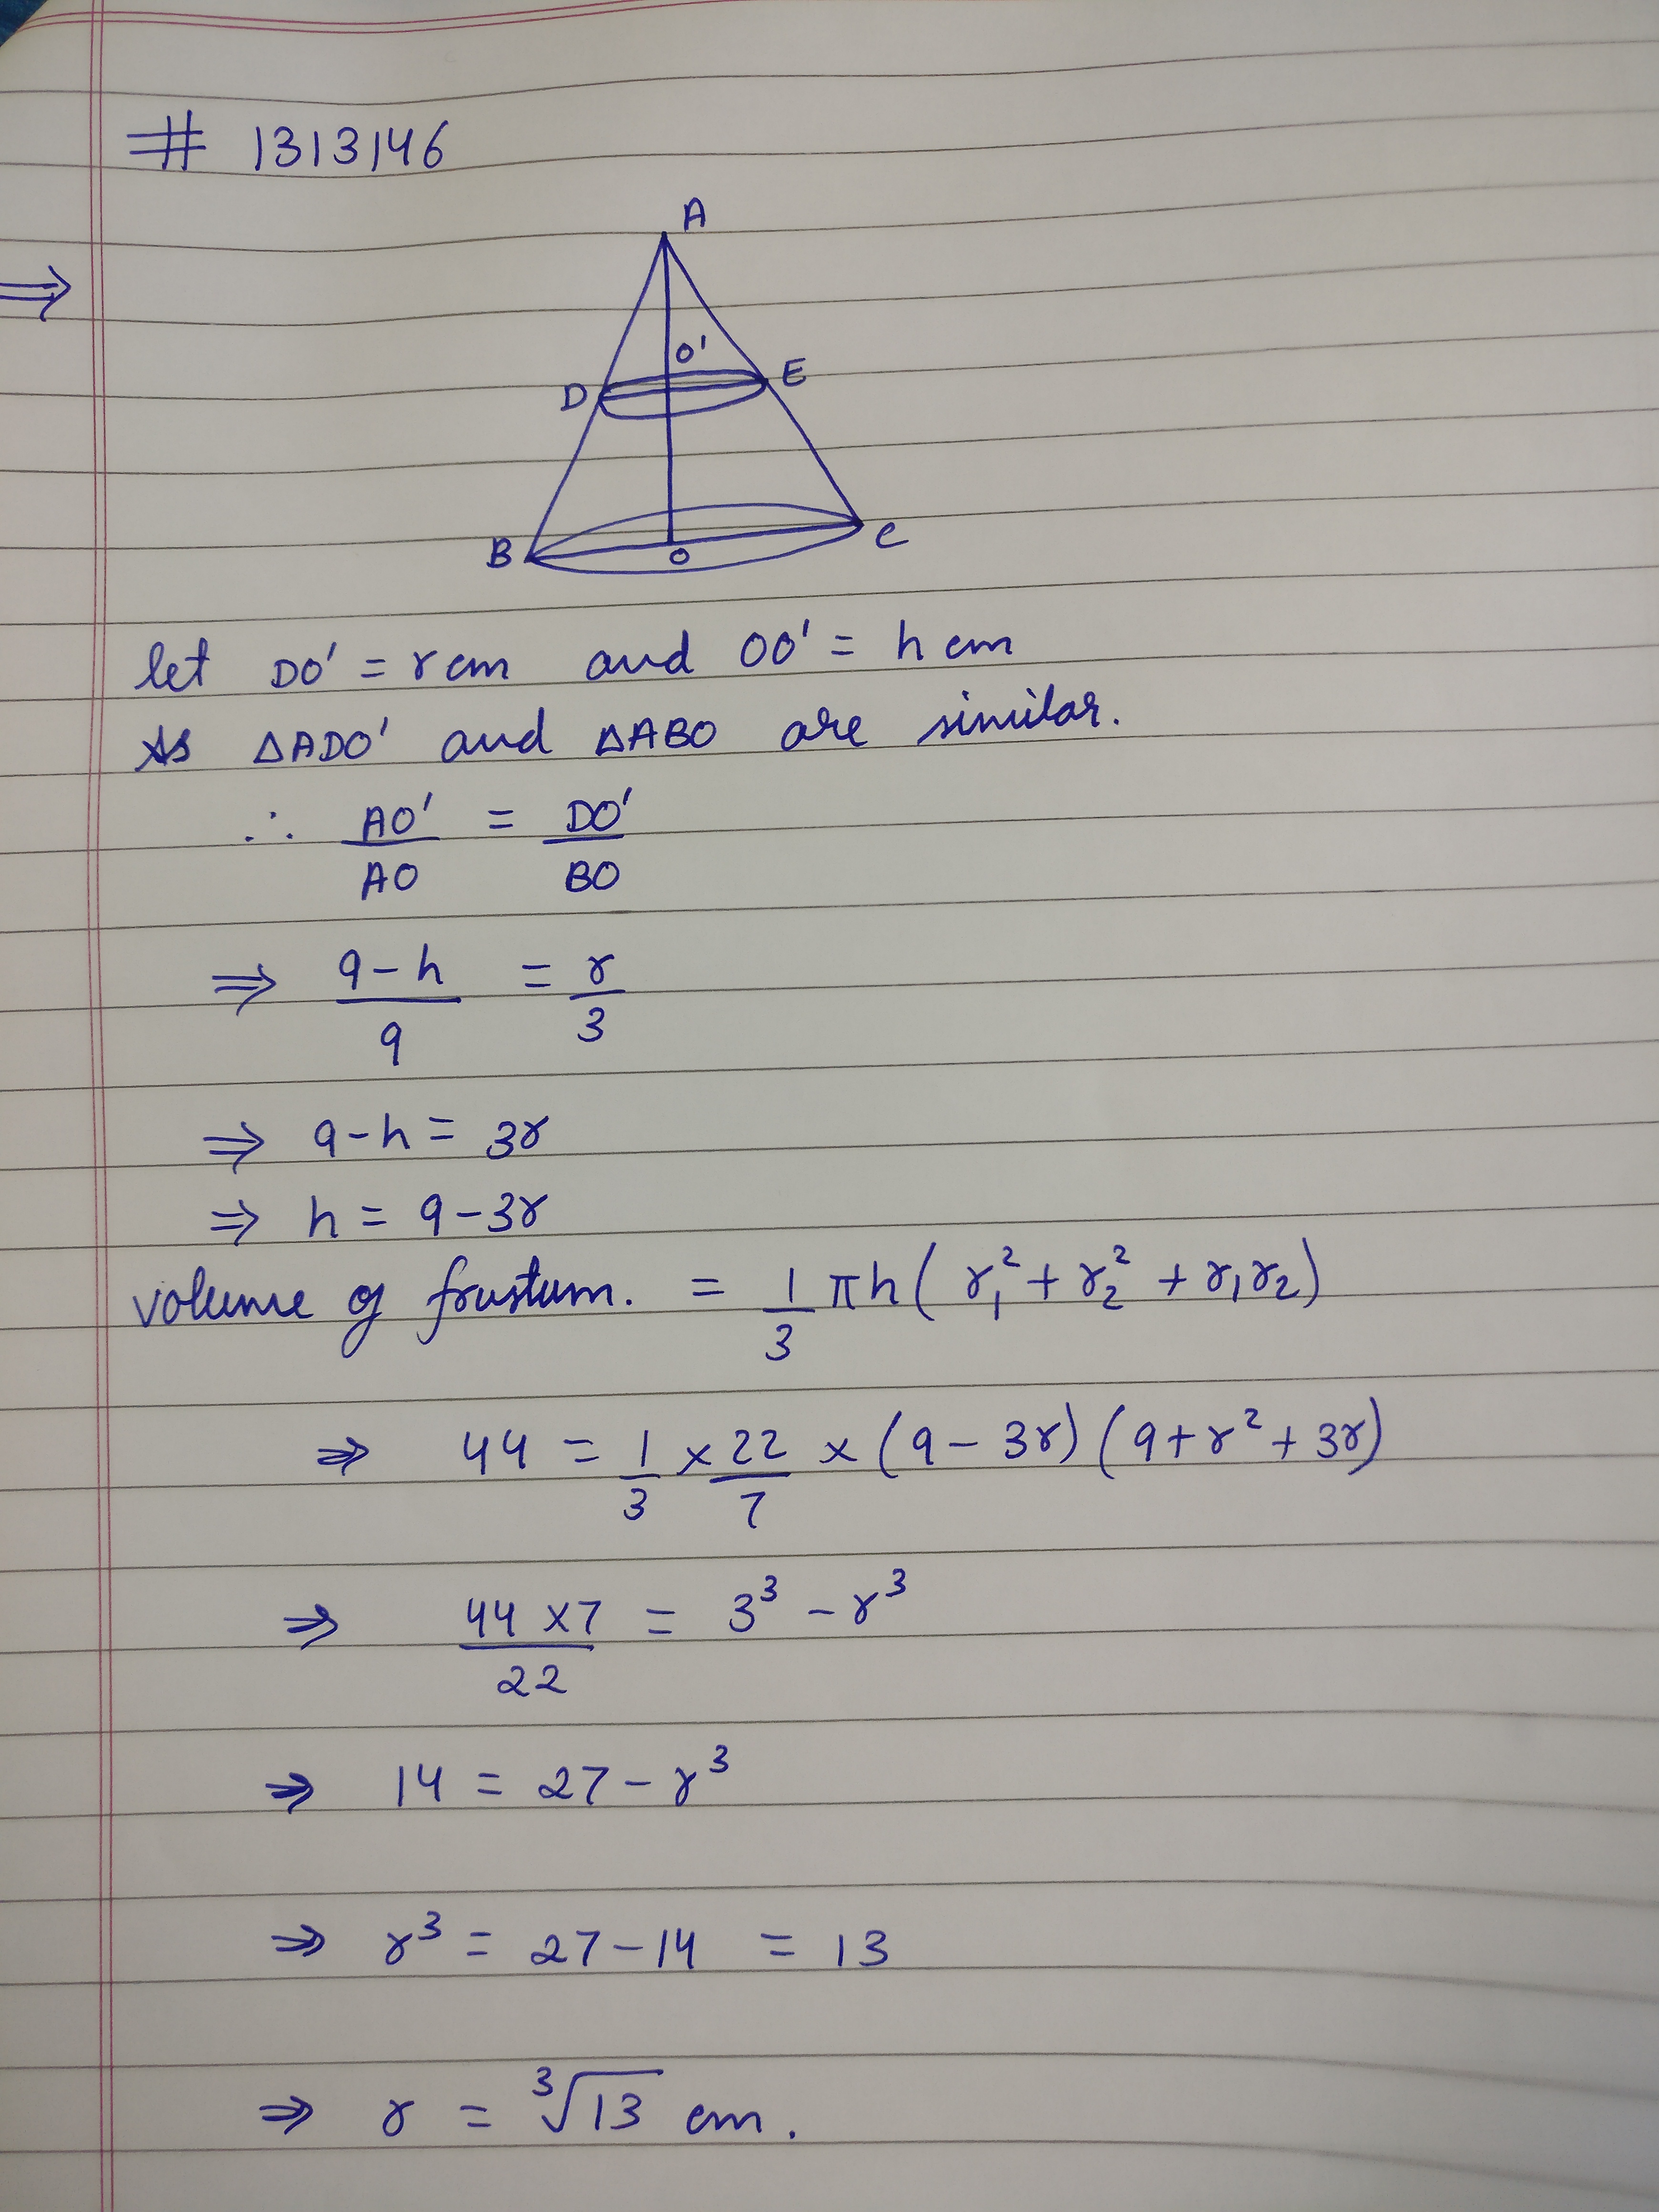 # 1313146
⇒
A
O'
D
E
B
O
C
let DO' = r cm and OO' = h cm
As ΔADO' and ΔABO are similar.
∴ AO'/AO = DO'/BO
⇒ (9-h)/9 = r/3
⇒ 9-h = 3r
⇒ h = 9-3r
volume of frustum. = 1/3 πh( r₁² + r₂² + r₁r₂)
⇒ 44 = 1/3 × 22/7 × (9-3r) (9+r²+3r)
⇒ (44 × 7)/22 = 3³ - r³
⇒ 14 = 27 - r³
⇒ r³ = 27-14 = 13
⇒ r = ³√13 cm.